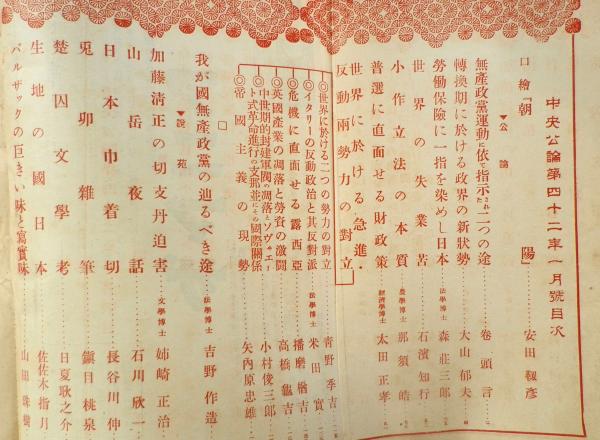 中央公論第四十二年一月號目次
口繪「朝陽」……安田靫彥
▲公論
無產政黨運動に依て指示された二つの途……卷頭言
轉換期に於ける政界の新狀勢……大山郁夫
勞働保險に一指を染めし日本……法學博士 森莊三郎
世界の失業苦……石濱知行
小作立法の本質……農學博士 那須皓
普選に直面せる財政策……經濟學博士 太田正孝
世界に於ける急進・反動兩勢力の對立
◎世界に於ける二つの勢力の對立……青野季吉
◎イタリーの反動政治と其反對派……法學博士 米田實
◎危機に直面せる露西亞……播磨楢吉
◎英國產業の凋落と勞資の激鬪……高橋龜吉
◎中世期的封建軍閥の凋落とソヴェート式革命進行の支那並にその國際關係……小村俊三郎
◎帝國主義の現勢……矢內原忠雄
□
我が國無產政黨の辿るべき途……法學博士 吉野作造
▼說苑
加藤淸正の切支丹迫害……文學博士 姉崎正治
山岳夜話……石川欣一
日本巾着切……長谷川伸
兎卯雜筆……鏑目桃泉
楚囚文學考……日夏耿之介
生地の國日本……佐佐木指月
バルザックの巨きい味と寫實味……山田珠樹